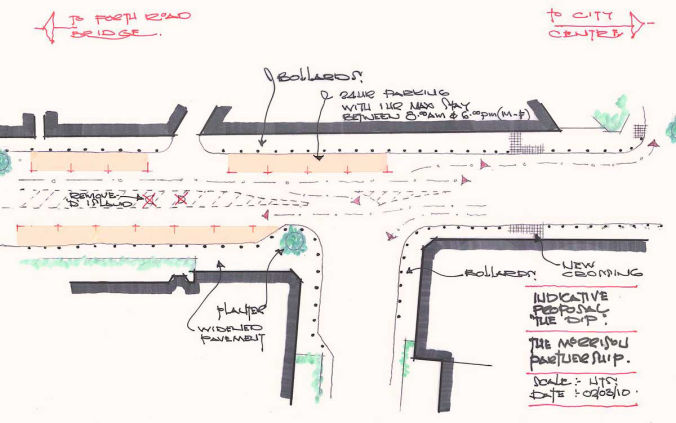 TO FORTH ROAD
BRIDGE.
TO CITY
CENTRE
BOLLARDS.
24HR PARKING
WITH 1HR MAX STAY
BETWEEN 8.00am & 6.00pm (M-F)
REMOVE
D' ISLAND
PLANTER
WIDENED
PAVEMENT
BOLLARDS.
NEW
CROSSING
INDICATIVE
PROPOSAL
"THE DIP".
THE MORRISON
PARTNERSHIP.
SCALE :- NTS
DATE :- 02/03/10.